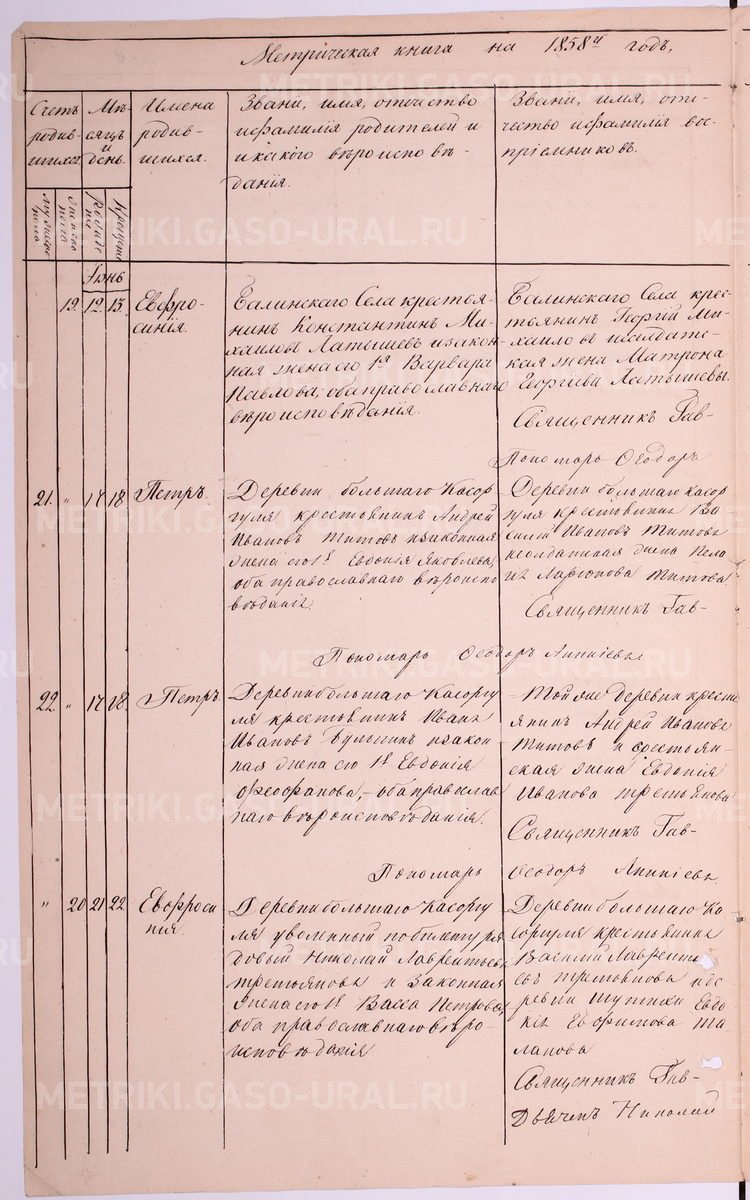 Метрическая книга на 1858й годъ,
Счетъ родив- шихся.
Мѣ- сяцъ и день.
Имена родив- шихся.
Званіи, имя, отечество
ифамилія родителей и
икакого вѣроисповѣ-
данія.
Званіи, имя, оте-
чество ифамилія вос-
пріемниковъ.
Мужеска пола
Женска пола
Рожде нія
Крещенія
Іюнь
19. 12. 13. Евфро-
синія.
Балинскаго Села крестья-
нинъ Константинъ Ми-
хаиловъ Латышевъ изакон-
ная жена его 1я Варвара
Павлова, оба православнаго
вѣроисповѣданія.
Балинскаго Села крес-
тьянинъ Георгій Ми-
хаиловъ исолдатс-
кая жена Матрона
Георгиева Латышевы.
Священникъ Гав-
Пономарь Ѳеодоръ
21. " 17 18 Петръ.
Деревни большаго Касор-
гуля крестьянинъ Андрей
Ивановъ Титовъ изаконная
жена его 1я Евдокія Яковлева,
оба православнаго вѣроиспо
вѣданія.
Деревни большаго касор
гуля крестьянинъ Ва-
силій Ивановъ Титовъ
исолдатская жена Пела
гія Ларионова Титова
Священникъ Гав-
Пономарь Ѳеодоръ
22. " 17 18. Петръ.
Деревни большаго Касоргу
ля крестьянинъ Иванъ
Ивановъ изакон
ная жена его 1я Евдокія
Феофанова, - оба православ
наго вѣроисповѣданія.
Тойже деревни крестья
янинъ Андрей Ивановъ
Титовъ и крестьян-
ская жена Евдокія
Иванова третьякова
Священникъ Гав-
Пономарь Ѳеодоръ
" 20 21 22 Евфроси
нія.
Деревни большаго Касоргу
ля уволенный побилету ря
довый Николай Лаврентьевъ
третьяковъ и Законная
Жена его 1я Васса Петрова,
оба православнаго вѣро-
исповѣданія
Деревни большаго Ка
соргуля крестьянинъ
Василій Лавренть
евъ третьяковъ идѣ
ревни Шутихи Евдо
кія Евфимова Та
ланова
Священникъ Гав-
Дьячекъ Николай
METRIKI.GASO-URAL.RU